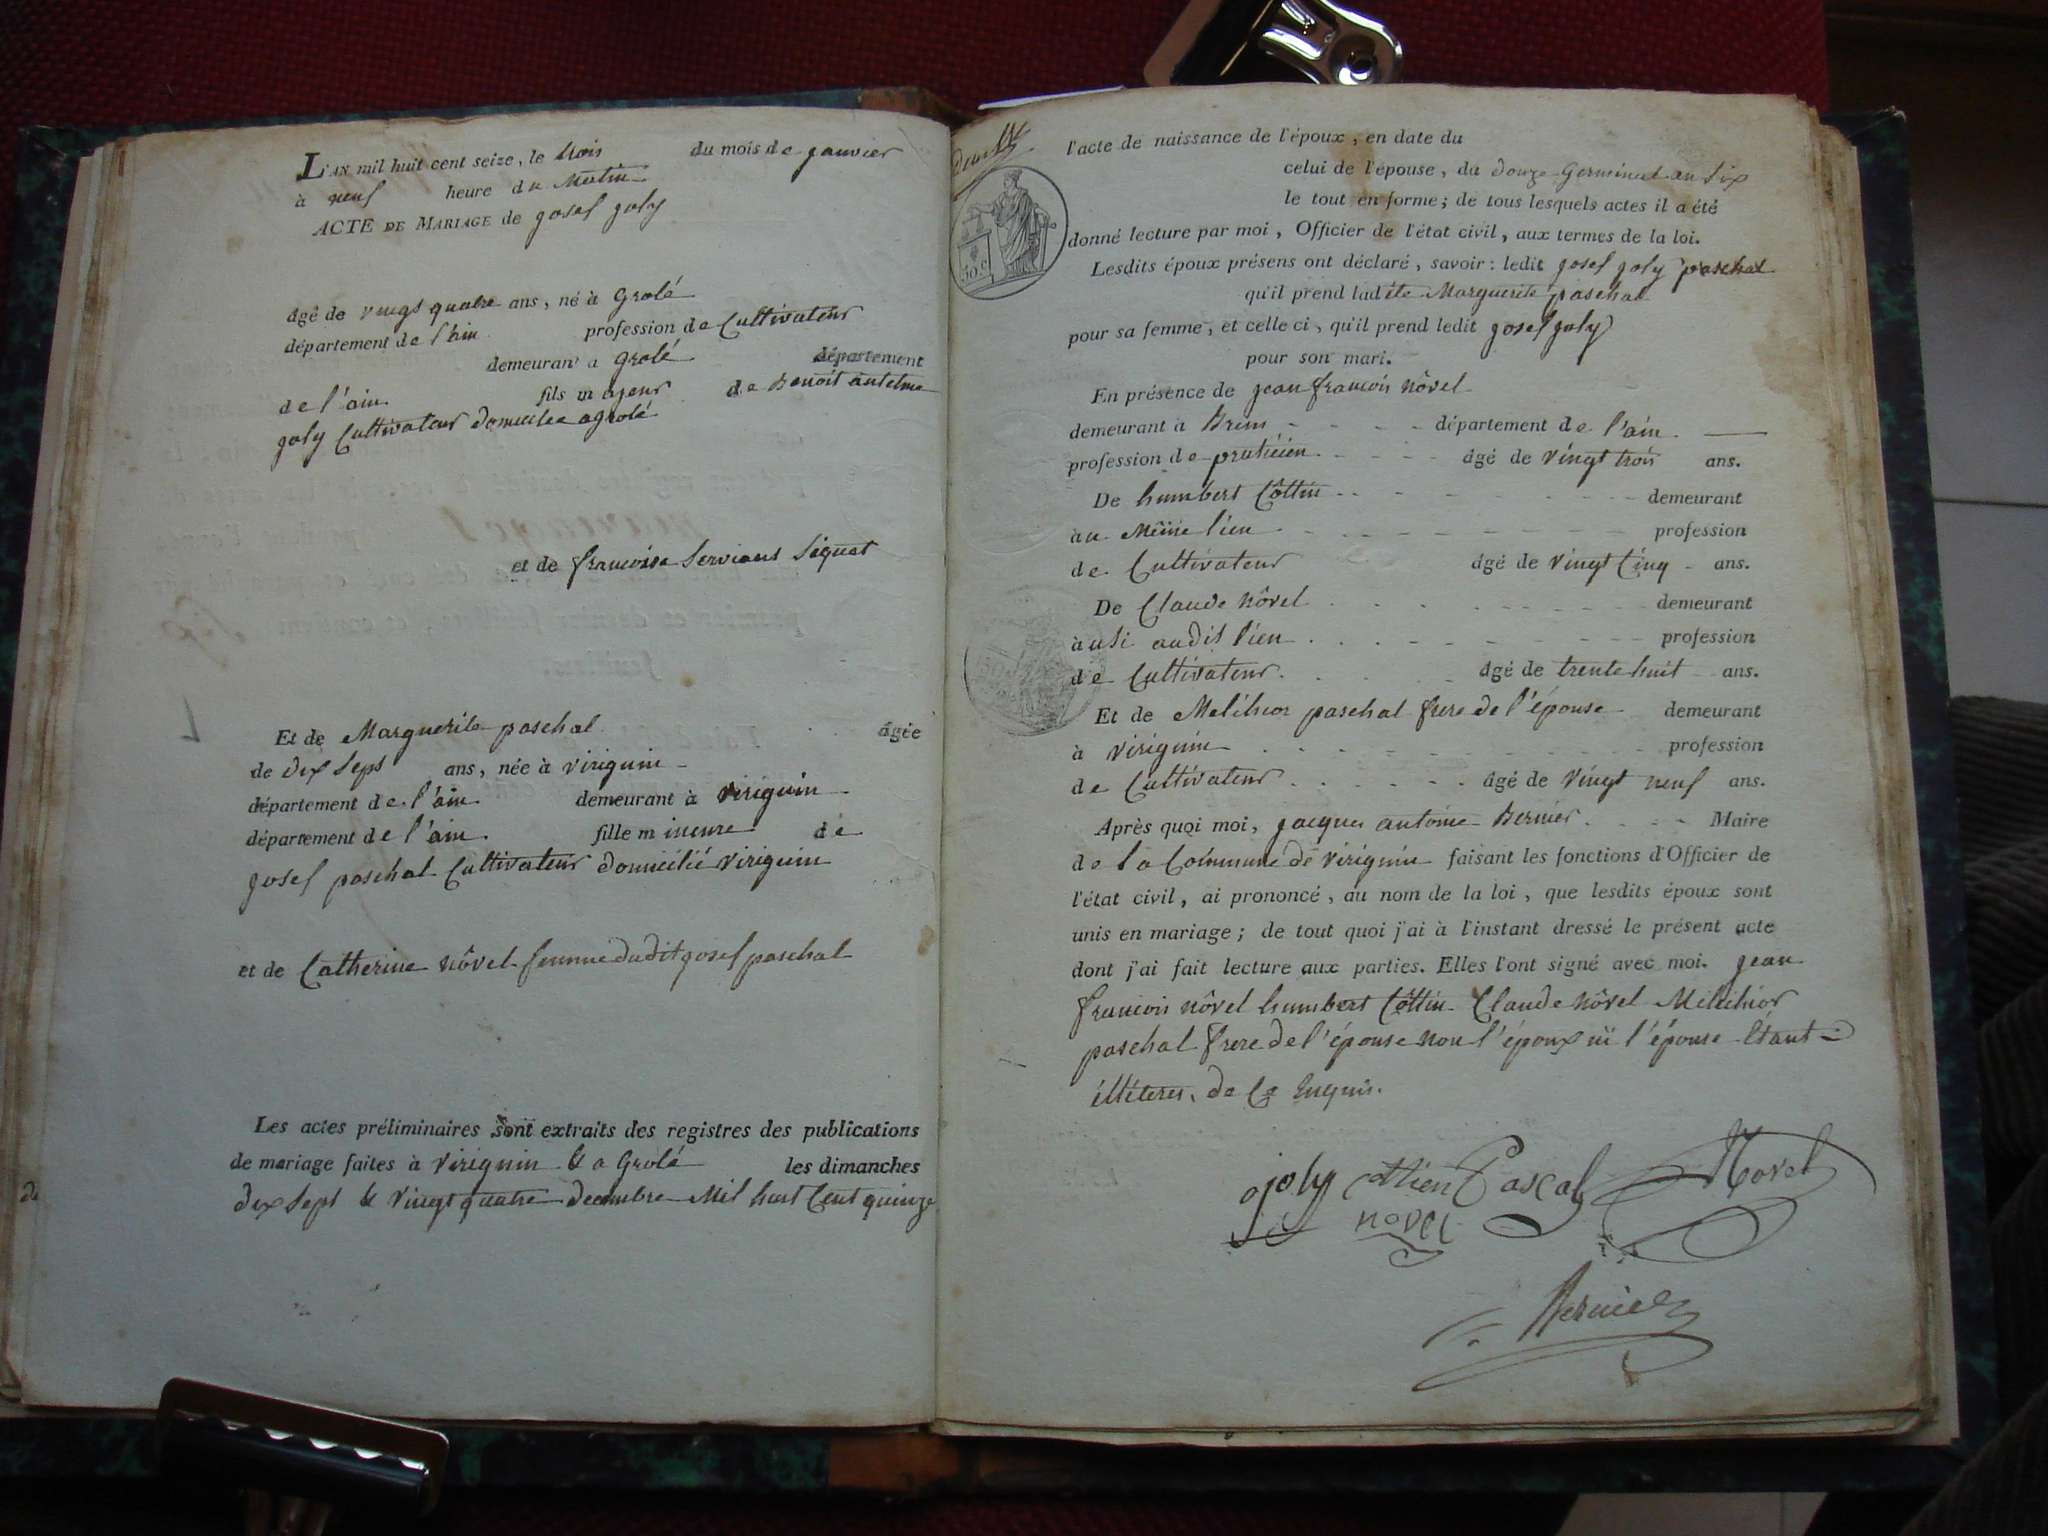 L'AN mil huit cent seize, le trois du mois de janvier
à neuf heure du Matin
ACTE DE MARIAGE de josef joly
âgé de vingt quatre ans, né à Grolé
département de l'ain profession de Cultivateur
demeurant a Grolé département
de l'ain. fils majeur de Benoit antelme
joly Cultivateur domicilee a grolé
et de francoise Servians Siquet
Et de Marguerite paschal âgée
de dix Sept ans, née à viriguin
département de l'ain demeurant à viriguin
département de l'ain. fille mineure de
josef paschal Cultivateur domicilié viriguin
et de Catherine nôvel femme dudit josef paschal
Les actes préliminaires sont extraits des registres des publications
de mariage faites à viriguin & a Grolé les dimanches
dix Sept & vingt quatre decembre Mil huit Cent quinze
l'acte de naissance de l'époux, en date du
celui de l'épouse, du douze Germinal an Six
le tout en forme; de tous lesquels actes il a été
donné lecture par moi, Officier de l'état civil, aux termes de la loi.
50 c
Lesdits époux présens ont déclaré, savoir: ledit josef joly paschal
qu'il prend ladite Marguerite paschal
pour sa femme, et celle ci, qu'il prend ledit josef joly
pour son mari.
En présence de jean francois nôvel
demeurant à Brens département de l'ain
profession de praticien âgé de vingt trois ans.
De humbert Côttin demeurant
au Même lieu profession
de Cultivateur âgé de vingt Cinq ans.
De Claude nôvel demeurant
àusi audit lieu profession
de Cultivateur. âgé de trente huit ans.
Et de Melchior paschal frere de l'épouse demeurant
à viriguin profession
de Cultivateur âgé de vingt neuf ans.
Après quoi moi, jacques antoine Bernier Maire
de la Commune de viriguin faisant les fonctions d'Officier de
l'état civil, ai prononcé, au nom de la loi, que lesdits époux sont
unis en mariage; de tout quoi j'ai à l'instant dressé le présent acte
dont j'ai fait lecture aux parties. Elles l'ont signé avec moi. jean
francois nôvel humbert Côttin Claude nôvel Melchior
paschal frere de l'épouse non l'époux ni l'épouse Etant
illiteres, de Ce Enquis.
joly Pascal Novel
novel
Bernier